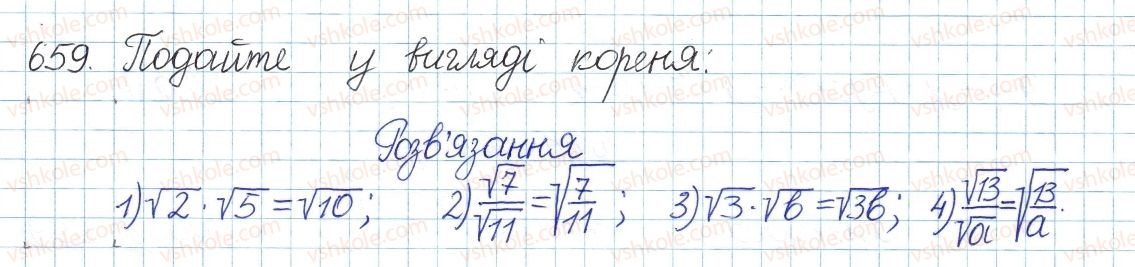 659. Подайте у вигляді кореня:
Розв'язання
1) √2 · √5 = √10; 2) √7/√11 = √(7/11); 3) √3 · √b = √3b; 4) √13/√a = √(13/a).